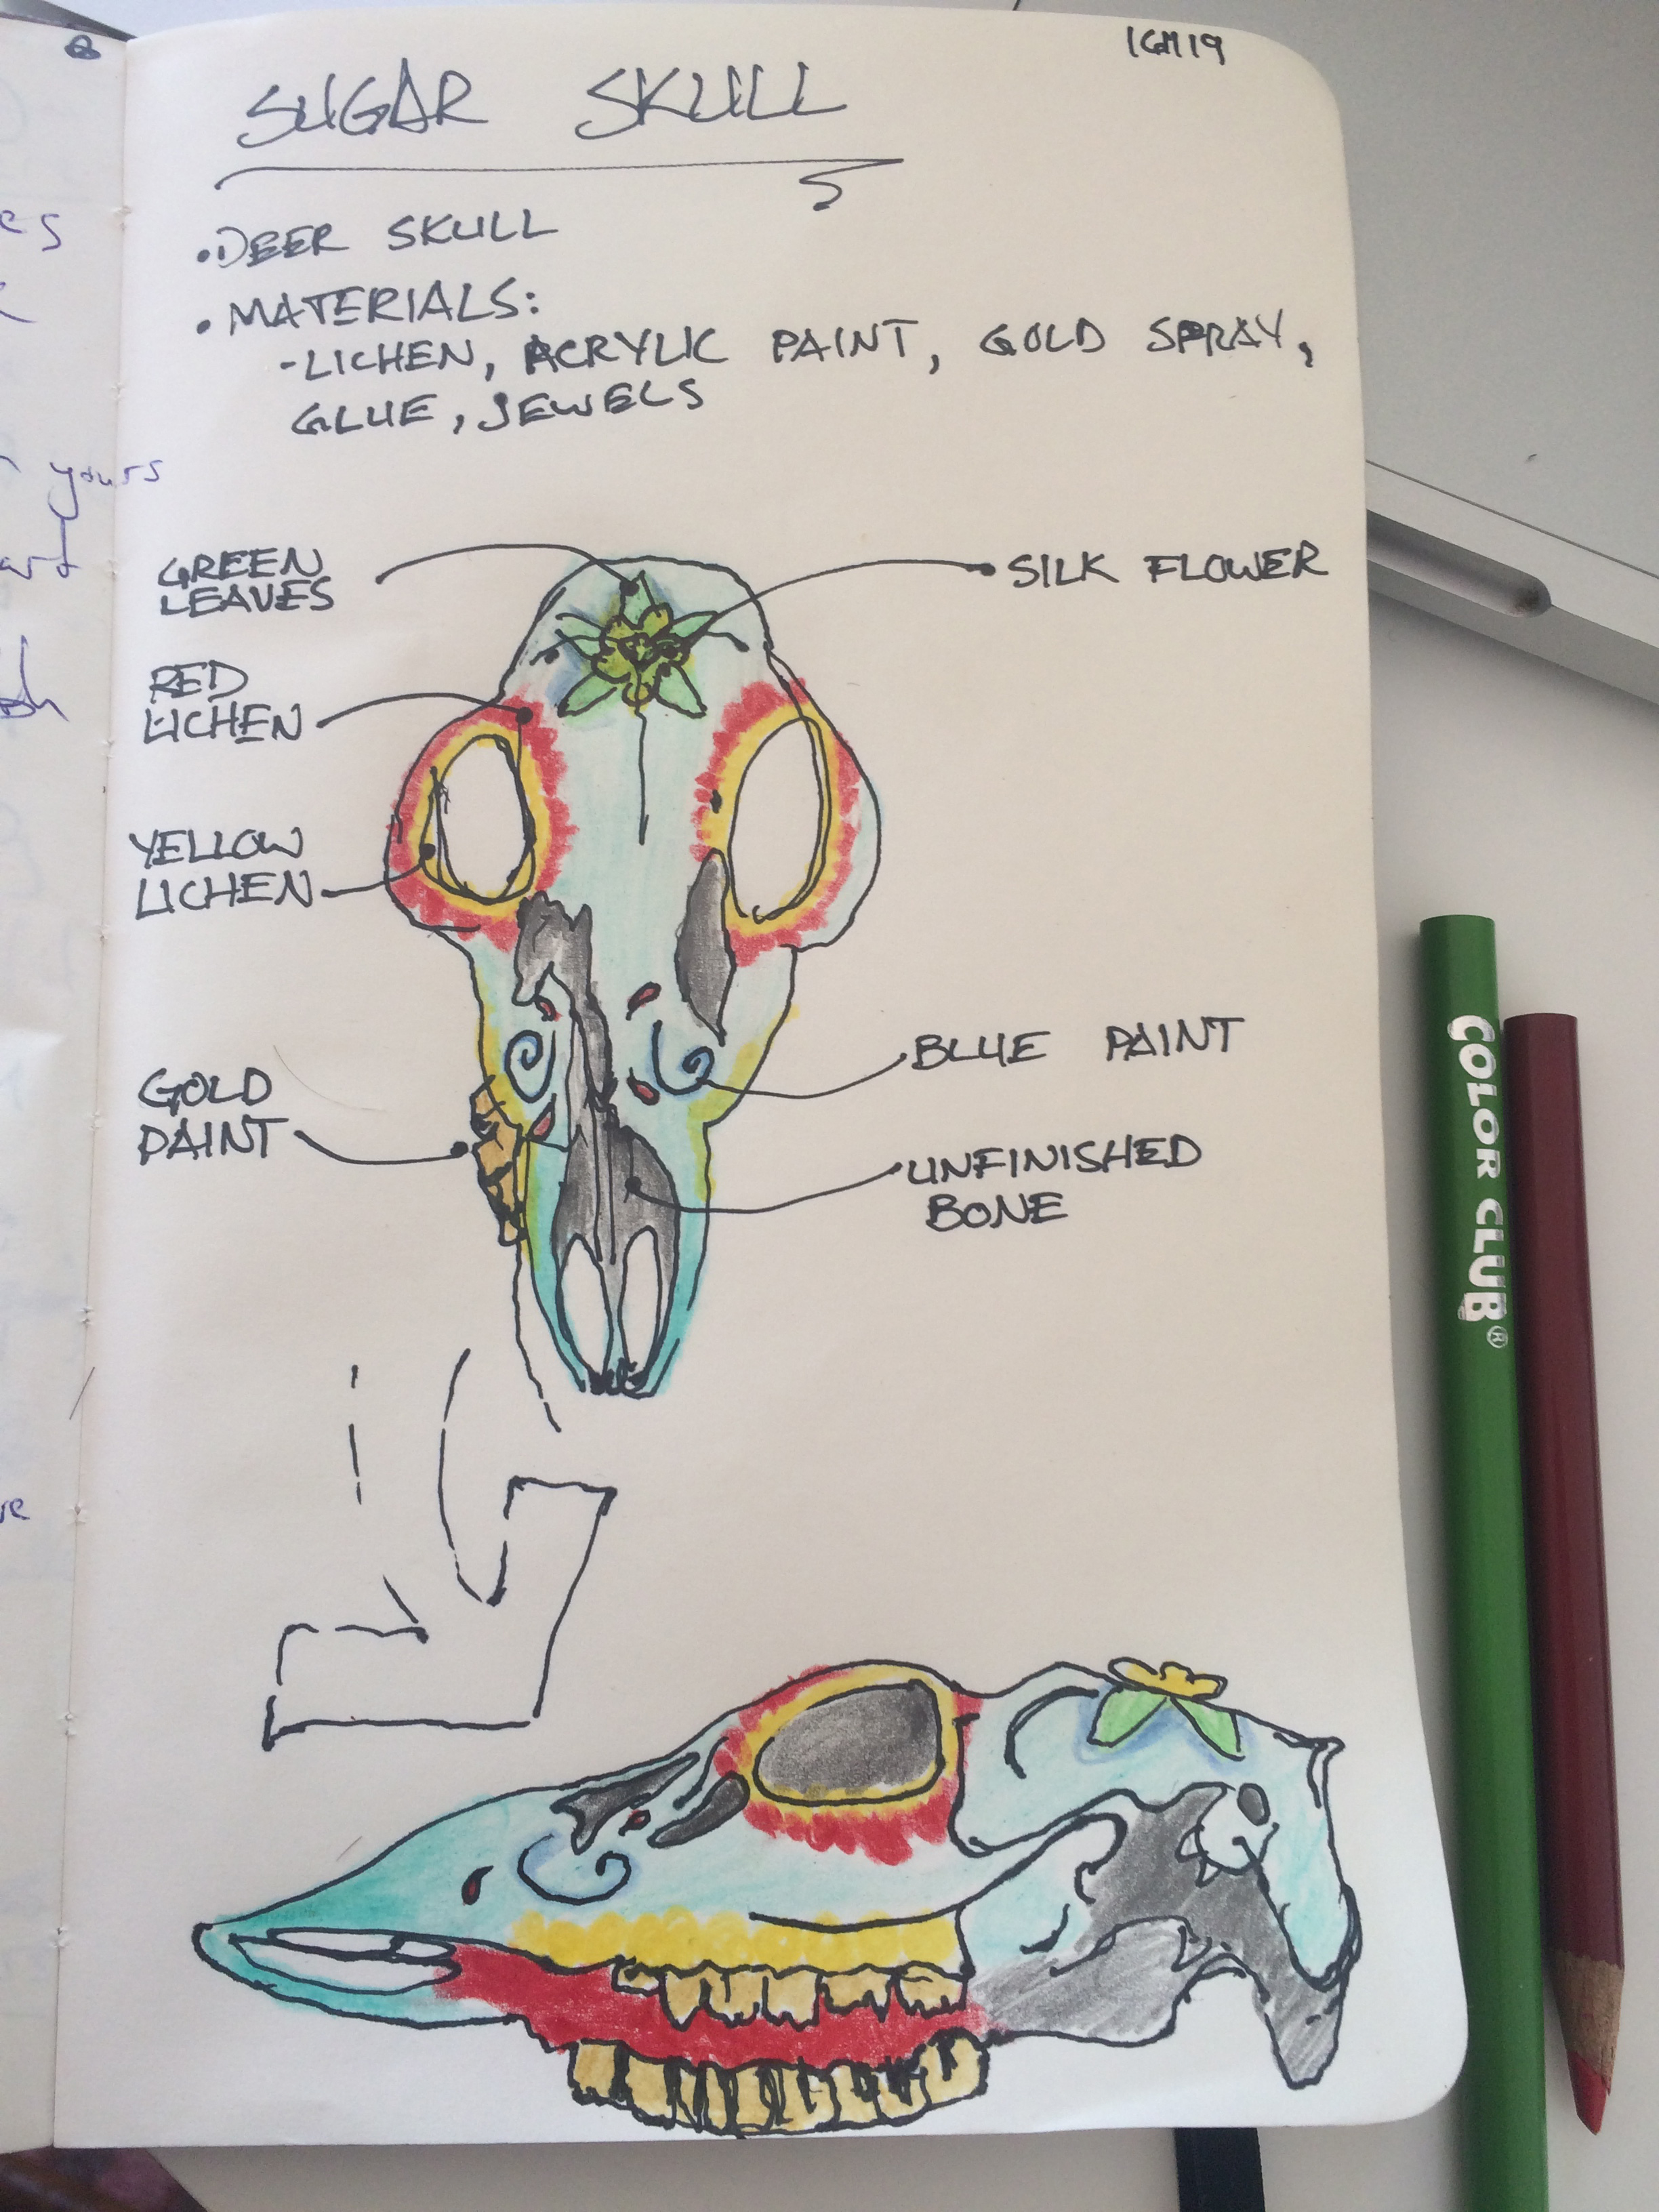 1GM19
SUGAR SKULL
• DEER SKULL
• MATERIALS:
- LICHEN, ACRYLIC PAINT, GOLD SPRAY,
GLUE, JEWELS
yours
GREEN
LEAVES
SILK FLOWER
RED
LICHEN
YELLOW
LICHEN
BLUE PAINT
GOLD
PAINT
UNFINISHED
BONE
COLOR CLUB®